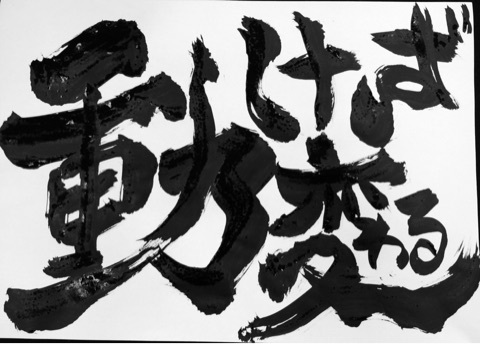 動けば
変わる